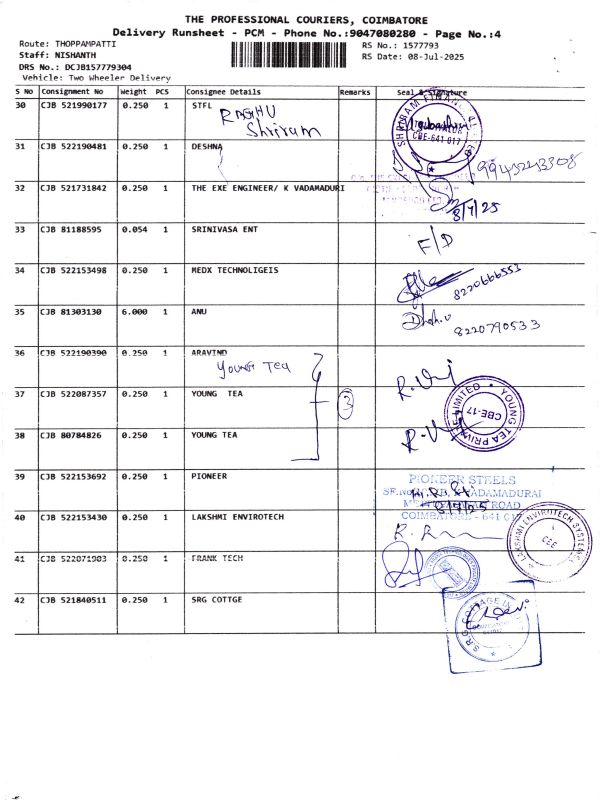 THE PROFESSIONAL COURIERS, COIMBATORE
Delivery Runsheet - PCM - Phone No.:9047080280 - Page No.:4
Route: THOPPAMPATTI
Staff: NISHANTH
DRS No.: DCJB157779304
Vehicle: Two Wheeler Delivery
RS No.: 1577793
RS Date: 08-Jul-2025
S NO Consignment No Weight PCS Consignee Details Remarks Seal & Signature
30 CJB 521990177 0.250 1 STFL
RAGHU
Shriram
SHRIRAM FINANCE
CBE-641 017
31 CJB 522190481 0.250 1 DESHNA
9945243308
32 CJB 521731842 0.250 1 THE EXE ENGINEER/ K VADAMADURI
8/7/25
33 CJB 81188595 0.054 1 SRINIVASA ENT
F/D
34 CJB 522153498 0.250 1 MEDX TECHNOLIGEIS
8220666553
35 CJB 81303130 6.000 1 ANU
8220790533
36 CJB 522190390 0.250 1 ARAVIND
Young Tea
37 CJB 522087357 0.250 1 YOUNG TEA
3
YOUNG TEA PRIVATE LIMITED
CBE-17
38 CJB 80784826 0.250 1 YOUNG TEA
39 CJB 522153692 0.250 1 PIONEER
PIONEER STEELS
VADAMADURAI
ROAD
COIMBATORE - 641
40 CJB 522153430 0.250 1 LAKSHMI ENVIROTECH
LAKSHMI ENVIROTECH SYSTEMS
CBE
41 CJB 522071903 0.250 1 FRANK TECH
42 CJB 521840511 0.250 1 SRG COTTGE
S.R.G COTTAGE